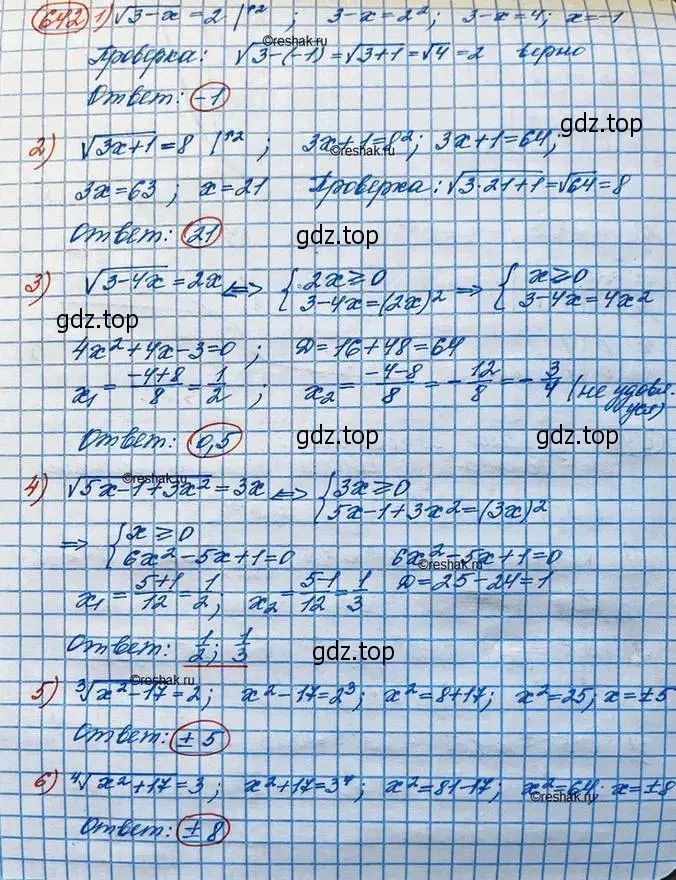 642 1) √3-x = 2 |↑2 ; 3-x=2²; 3-x=4; x=-1
©reshak.ru
Проверка: √3-(-1) = √3+1 = √4 = 2 верно
Ответ: -1
gdz.top
2) √3x+1 = 8 |↑2 ; 3x+1=8²; 3x+1=64;
©reshak.ru
3x=63 ; x=21 Проверка: √3·21+1 = √64 = 8
Ответ: 21
gdz.top
3) √3-4x = 2x ⟺ { 2x≥0 3-4x=(2x)² ⟹ { x≥0 3-4x=4x²
gdz.top
4x²+4x-3=0 ; D=16+48=64
x₁ = (-4+8)/8 = 1/2 ; x₂ = (-4-8)/8 = -12/8 = -3/4 (не удовл. усл)
Ответ: 0,5
gdz.top
gdz.top
©reshak.ru
4) √5x-1+3x² = 3x ⟺ { 3x≥0 5x-1+3x²=(3x)²
⟹ { x≥0 6x²-5x+1=0 6x²-5x+1=0
©reshak.ru
x₁ = (5+1)/12 = 1/2 ; x₂ = (5-1)/12 = 1/3 D=25-24=1
Ответ: 1/2 ; 1/3
gdz.top
gdz.top
©reshak.ru
5) ³√x²-17 = 2; x²-17=2³; x²=8+17; x²=25; x=±5
Ответ: ±5
gdz.top
6) ⁴√x²+17 = 3 ; x²+17=3⁴; x²=81-17; x²=64; x=±8
©reshak.ru
Ответ: ±8